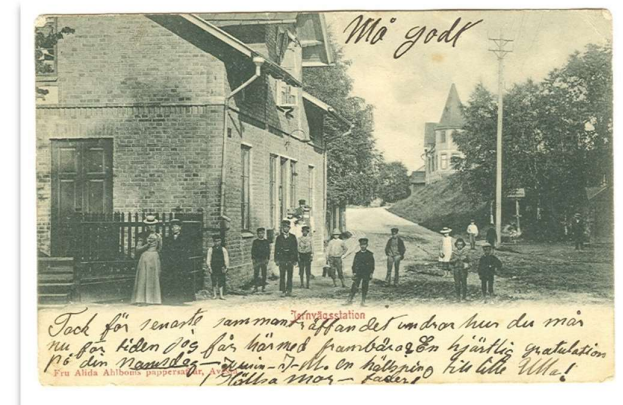 Må godt
Jernvägsstation
Tack för senaste sammanträffandet undrar hur du mår
nu för tiden Jag får härmed frambära En hjärtlig gratulation
på din Namsdag en hälsning till lille Ulla!
Fru Alida Ahlboms pappersaffär,
Hälsa mor